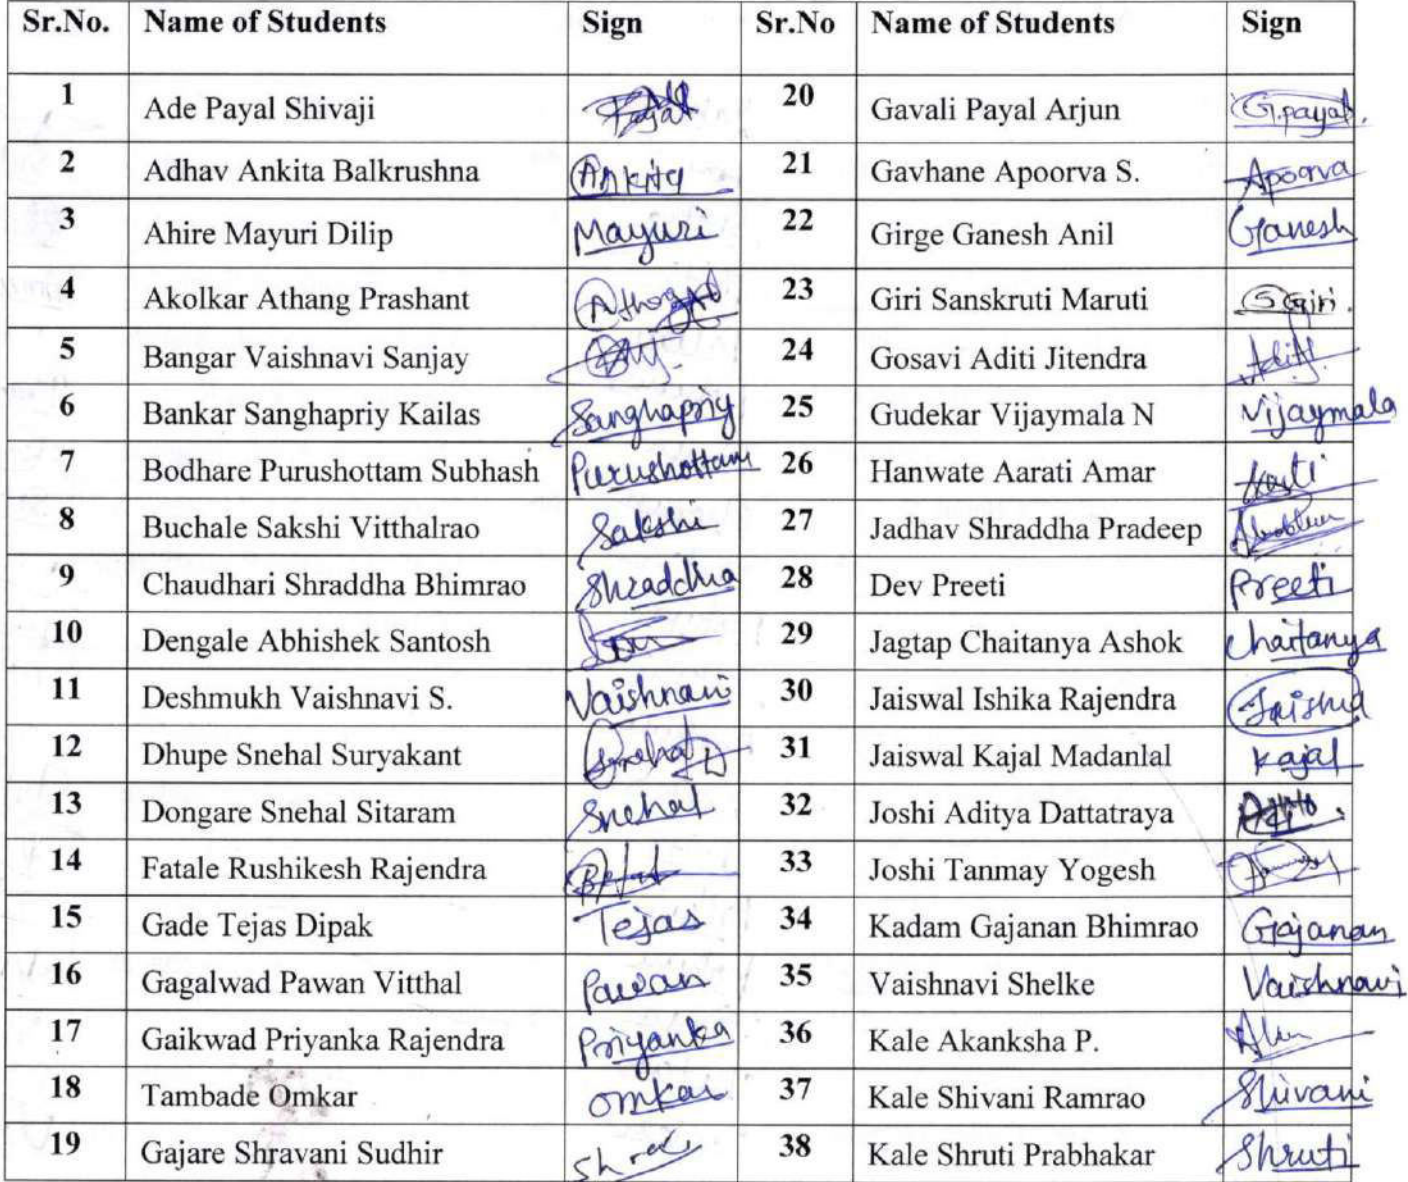 Sr.No. Name of Students Sign Sr.No Name of Students Sign
1 Ade Payal Shivaji 20 Gavali Payal Arjun G.payal.
2 Adhav Ankita Balkrushna Ankita 21 Gavhane Apoorva S. Apoorva
3 Ahire Mayuri Dilip Mayuri 22 Girge Ganesh Anil Ganesh
4 Akolkar Athang Prashant 23 Giri Sanskruti Maruti S Giri.
5 Bangar Vaishnavi Sanjay 24 Gosavi Aditi Jitendra
6 Bankar Sanghapriy Kailas Sanghapriy 25 Gudekar Vijaymala N Vijaymala
7 Bodhare Purushottam Subhash Purushottam 26 Hanwate Aarati Amar
8 Buchale Sakshi Vitthalrao Sakshi 27 Jadhav Shraddha Pradeep
9 Chaudhari Shraddha Bhimrao Shraddha 28 Dev Preeti Preeti
10 Dengale Abhishek Santosh 29 Jagtap Chaitanya Ashok Chaitanya
11 Deshmukh Vaishnavi S. Vaishnavi 30 Jaiswal Ishika Rajendra
12 Dhupe Snehal Suryakant Snehal D 31 Jaiswal Kajal Madanlal Kajal
13 Dongare Snehal Sitaram Snehal 32 Joshi Aditya Dattatraya
14 Fatale Rushikesh Rajendra 33 Joshi Tanmay Yogesh
15 Gade Tejas Dipak Tejas 34 Kadam Gajanan Bhimrao Gajanan
16 Gagalwad Pawan Vitthal Pawan 35 Vaishnavi Shelke Vaishnavi
17 Gaikwad Priyanka Rajendra Priyanka 36 Kale Akanksha P.
18 Tambade Omkar omkar 37 Kale Shivani Ramrao Shivani
19 Gajare Shravani Sudhir 38 Kale Shruti Prabhakar Shruti